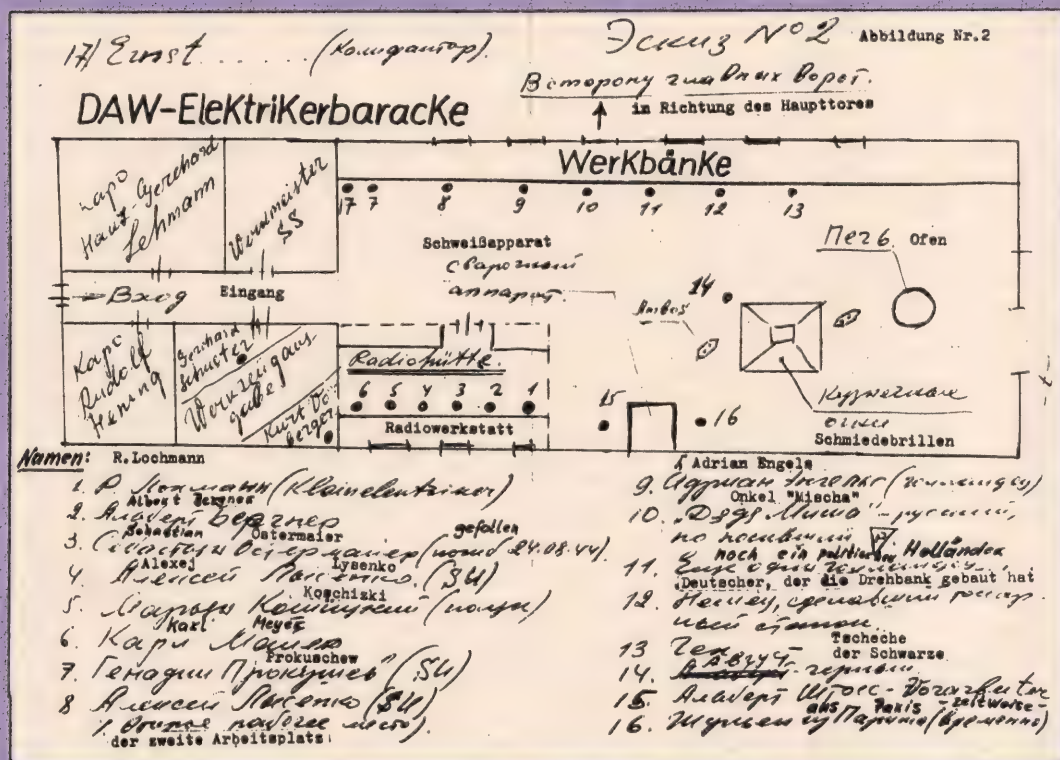 17/ Ernst ...... (Калифактор).
Эскиз № 2 Abbildung Nr.2
В сторону главных ворот.
in Richtung des Haupttores
DAW-Elektrikerbaracke
Werkbänke
Kapo
Hans-Gerehard
Lehmann
Werkmeister
SS
17 7 8 9 10 11 12 13
Schweißapparat
сварочный
аппарат.
Печь. Ofen
14
Ambos
Вход
Eingang
Капо
Rudolf
Hening
Gerehard
Schuster
Werkzeugaus
gabe
Kurt
berger
Radiohütte.
6 5 4 3 2 1
Radiowerkstatt
15
16
Кузнечные
очки
Schmiedebrillen
Namen: R.Lochmann
1. Р. Лохманн (Kleinelektriker)
Albert
2. Альберт Бергнер
Sebastian Ostermaier gefallen
3. Себастьян Остермайер (погиб 24.08.44).
Alexej Lysenko
4. Алексей Лысенко. (SU)
Koschizki
5. Марьян Кошицкий (поляк)
Karl Meyer
6. Карл Майер
Prokuschew
7. Генадий Прокушев (SU)
8 Алексей Лысенко (SU)
Второе рабочее место).
der zweite Arbeitsplatz
Adrian Engels
9. Адриан Энгельс (голландец)
Onkel "Mischa"
10. "Дядя Миша" - русский,
но носивший
noch ein politischer Holländer
11. Еще один голландец
Deutscher, der die Drehbank gebaut hat
12. Немец, сделавший токар
ный станок.
Tscheche
13 Чех
der Schwarze
14. Август - черный
15. Альберт Штосс - Vorarbeiter
aus Paris - zeitweise -
16. Жульен из Парижа (временно)